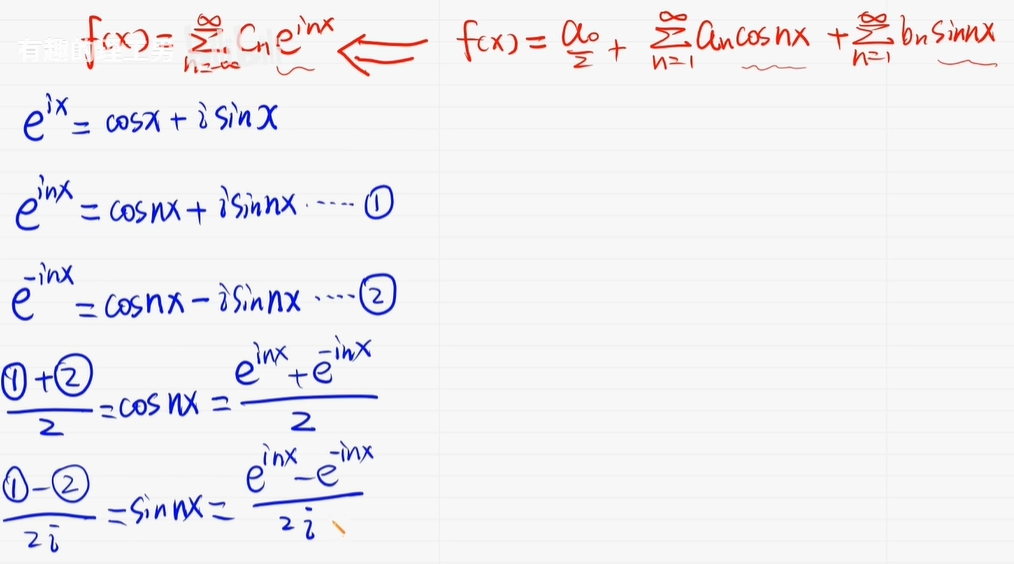 f(x) = \sum_{n=-\infty}^{\infty} C_n e^{inx} ⇐ f(x) = \frac{a_0}{2} + \sum_{n=1}^{\infty} a_n cosnx + \sum_{n=1}^{\infty} b_n sinnx
有趣的理工男
e^{ix} = cosx + i sinx
e^{inx} = cosnx + i sinnx ····· ①
e^{-inx} = cosnx - i sinnx ····· ②
\frac{①+②}{2} = cosnx = \frac{e^{inx} + e^{-inx}}{2}
\frac{①-②}{2i} = sinnx = \frac{e^{inx} - e^{-inx}}{2i}